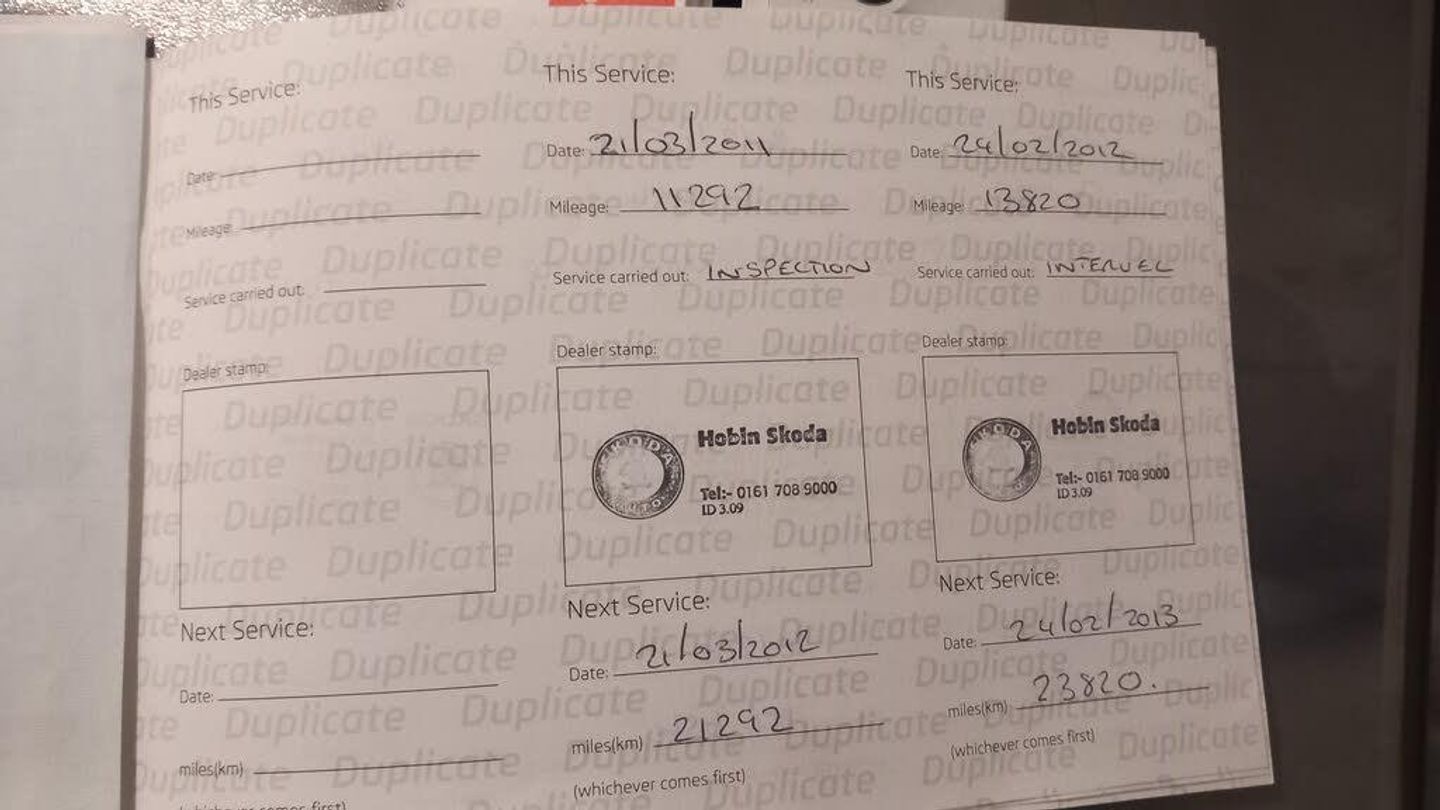 This Service:
Date:
Mileage:
Service carried out:
Dealer stamp:
Next Service:
Date:
miles(km)
(whichever comes first)
This Service:
Date: 21/03/2011
Mileage: 11292
Service carried out: INSPECTION
Dealer stamp:
SKODA
AUTO
Hobin Skoda
Tel:- 0161 708 9000
ID 3.09
Next Service:
Date: 21/03/2012
miles(km) 21292
(whichever comes first)
This Service:
Date: 24/02/2012
Mileage: 13820
Service carried out: INTERVEL
Dealer stamp:
SKODA
Hobin Skoda
Tel:- 0161 708 9000
ID 3.09
Next Service:
Date: 24/02/2013
miles(km) 23820.
(whichever comes first)
Duplicate